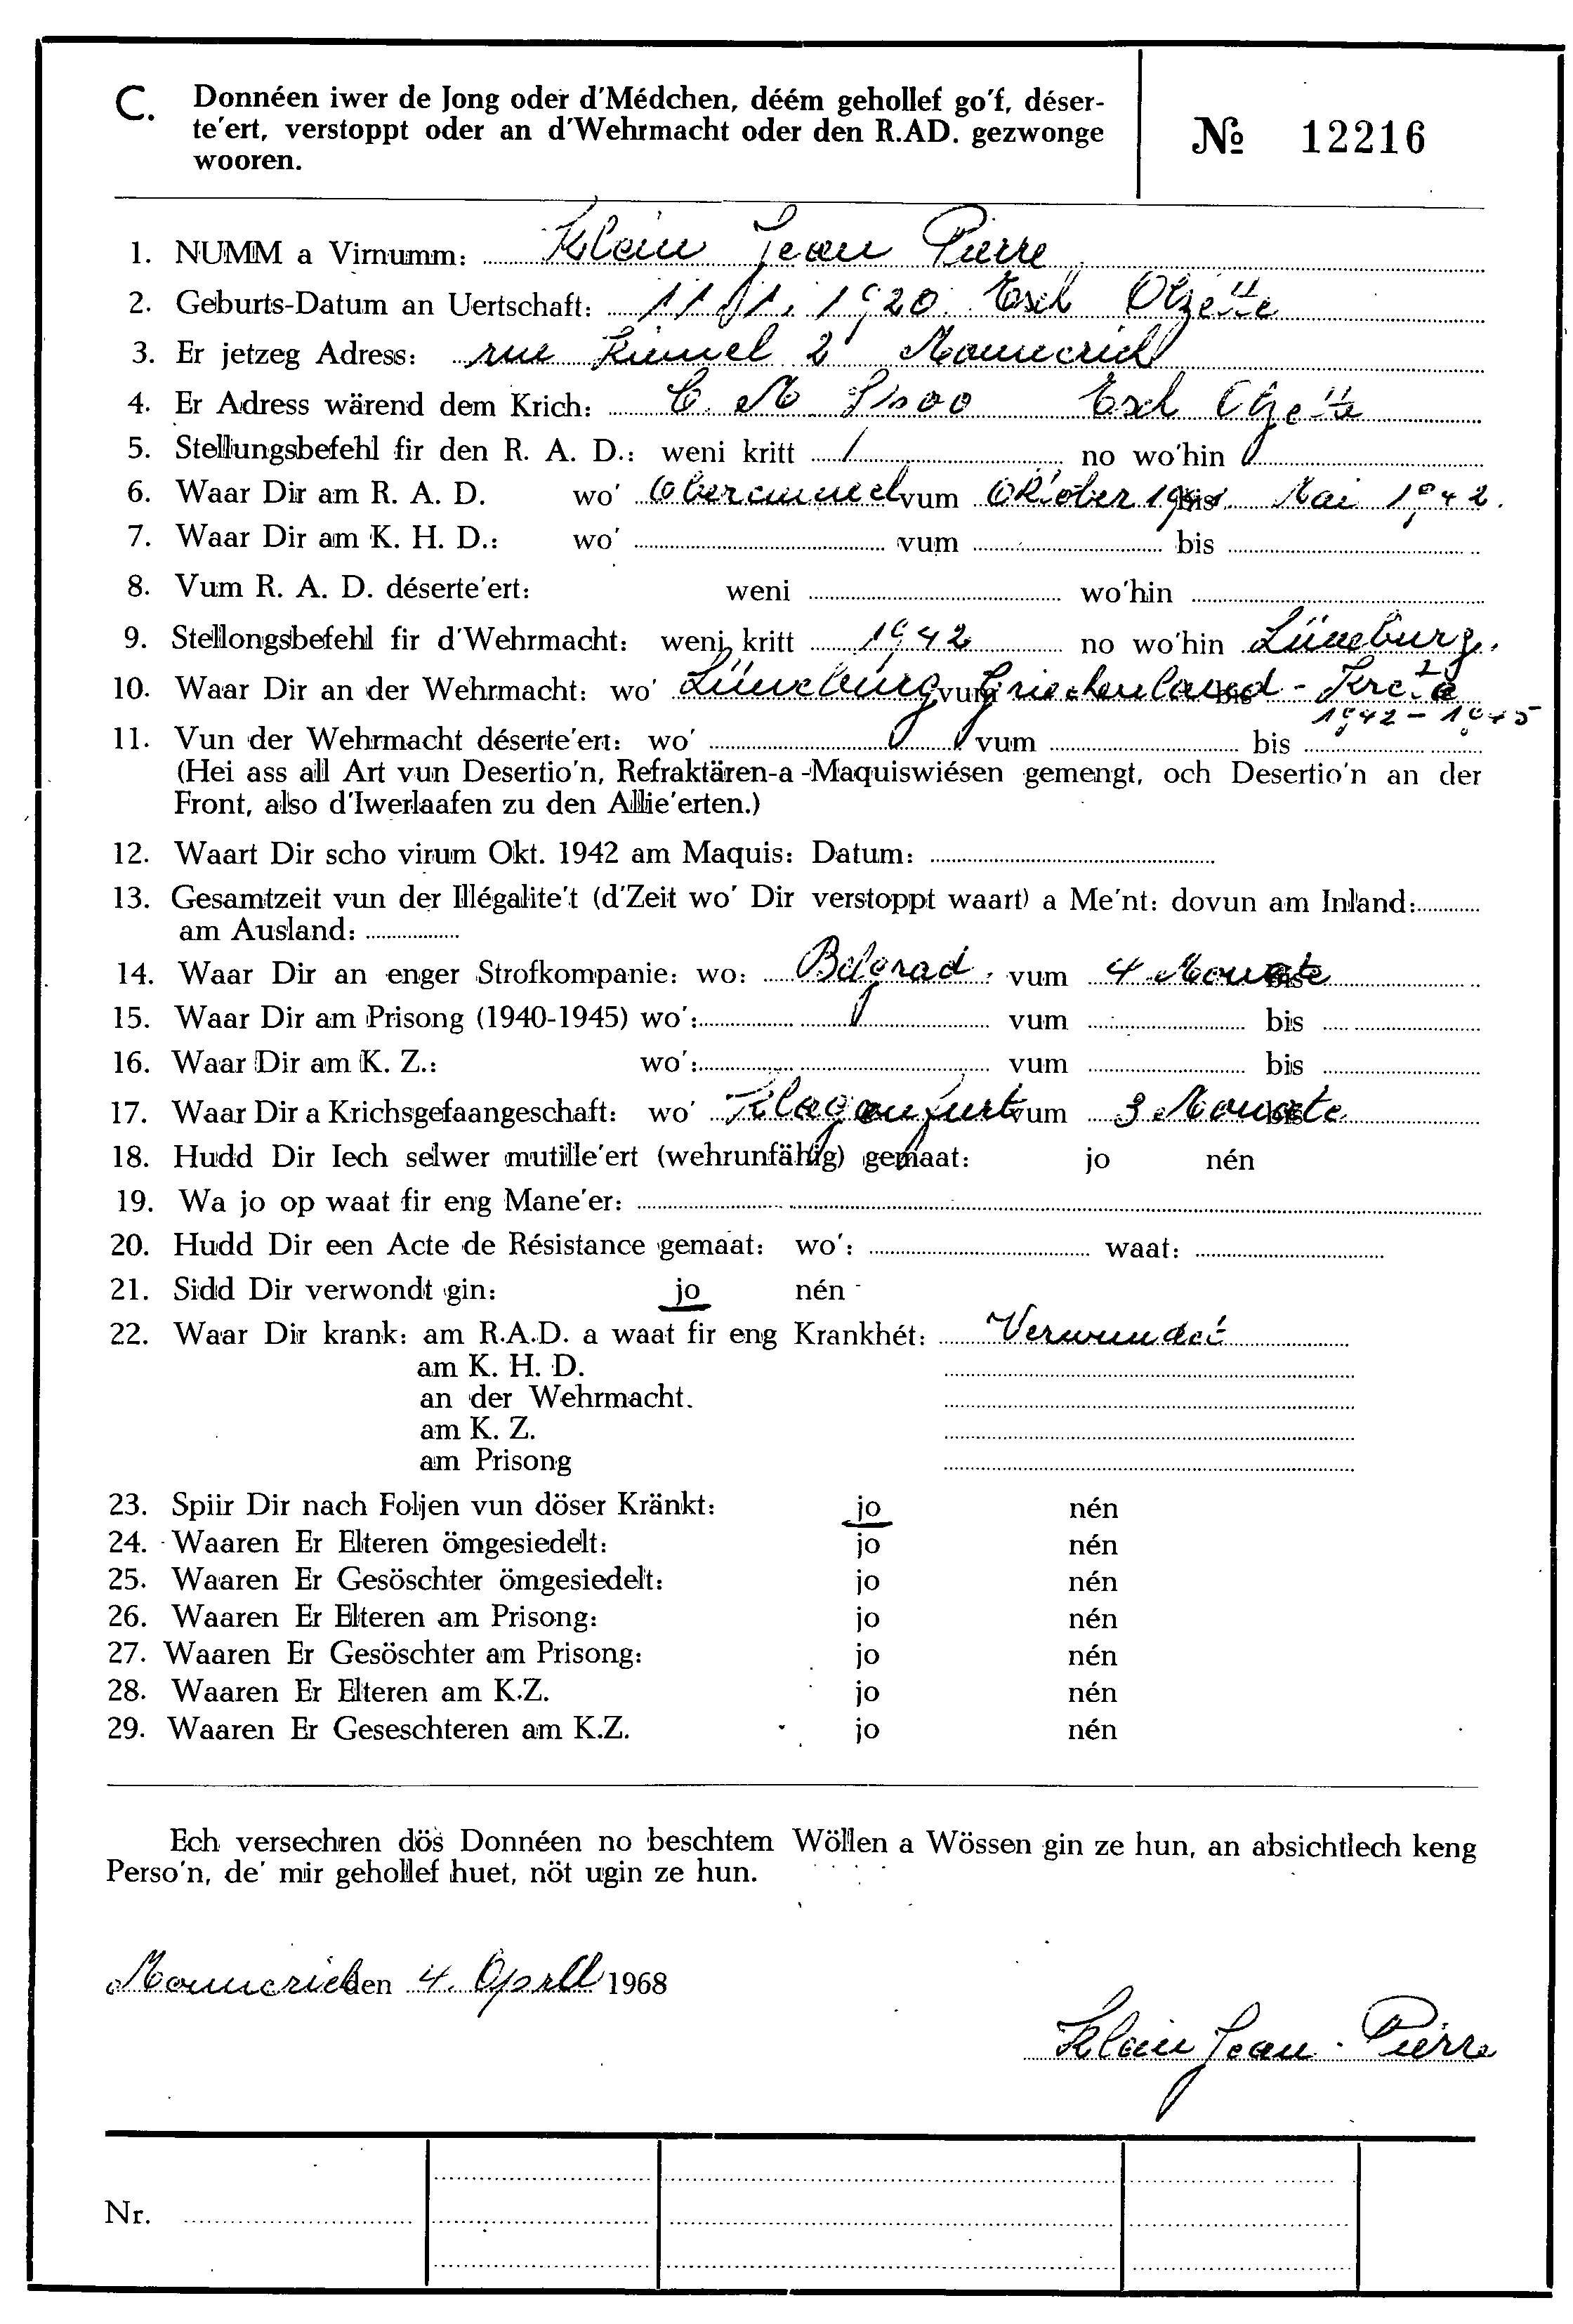 C. Donnéen iwer de Jong oder d'Médchen, déém gehollef go'f, déser-
te'ert, verstoppt oder an d'Wehrmacht oder den R.AD. gezwonge
wooren.
№ 12216
1. NUMM a Virnumm: Klein Jean Pierre
2. Geburts-Datum an Uertschaft: 11.1.1920 Esch Olzette
3. Er jetzeg Adress: rue 2 Monnerich
4. Er Adress wärend dem Krich: Esch Olzette
5. Stellungsbefehl fir den R. A. D.: weni kritt / no wo'hin
6. Waar Dir am R. A. D. wo' Oberemmel vum Oktober 1941 bis Mai 1942.
7. Waar Dir am K. H. D.: wo' vum bis
8. Vum R. A. D. déserte'ert: weni wo'hin
9. Stellongsbefehl fir d'Wehrmacht: weni kritt 1942 no wo'hin Lüneburg.
10. Waar Dir an der Wehrmacht: wo' Lüneburg vum Griechenland - bis
1942 - 1945
11. Vun der Wehrmacht déserte'ert: wo' vum bis
(Hei ass all Art vun Desertio'n, Refraktären-a-Maquiswiésen gemengt, och Desertio'n an der
Front, also d'Iwerlaafen zu den Allie'erten.)
12. Waart Dir scho virum Okt. 1942 am Maquis: Datum:
13. Gesamtzeit vun der Illégalite't (d'Zeit wo' Dir verstoppt waart) a Me'nt: dovun am Inland:
am Ausland:
14. Waar Dir an enger Strofkompanie: wo: Belgrad vum 4 Monate bis
15. Waar Dir am Prisong (1940-1945) wo': vum bis
16. Waar Dir am K. Z.: wo': vum bis
17. Waar Dir a Krichsgefaangeschaft: wo' Klagenfurt vum 3 Monate bis
18. Hudd Dir Iech selwer mutille'ert (wehrunfähig) gemaat: jo nén
19. Wa jo op waat fir eng Mane'er:
20. Hudd Dir een Acte de Résistance gemaat: wo': waat:
21. Sidd Dir verwondt gin: jo nén
22. Waar Dir krank: am R.A.D. a waat fir eng Krankhét: Verwundet
am K. H. D.
an der Wehrmacht.
am K. Z.
am Prisong
23. Spiir Dir nach Foljen vun döser Kränkt: jo nén
24. Waaren Er Elteren ömgesiedelt: jo nén
25. Waaren Er Gesöschter ömgesiedelt: jo nén
26. Waaren Er Elteren am Prisong: jo nén
27. Waaren Er Gesöschter am Prisong: jo nén
28. Waaren Er Elteren am K.Z. jo nén
29. Waaren Er Geseschteren am K.Z. jo nén
Ech versechren dös Donnéen no beschtem Wöllen a Wössen gin ze hun, an absichtlech keng
Perso'n, de' mir gehollef huet, nöt ugin ze hun.
Monnerich den 4. April 1968
Klein Jean-Pierre
Nr.